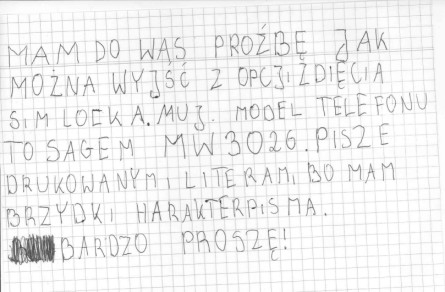 MAM DO WAS PROŹBĘ JAK
MOŻNA WYJŚĆ Z OPCJI ZDIĘCIA
SIM LOCKA. MUJ. MODEL TELEFONU
TO SAGEM MW3026. PISZE
DRUKOWANYMI LITERAMI BO MAM
BRZYDKI HARAKTERPISMA.
BARDZO PROSZĘ!